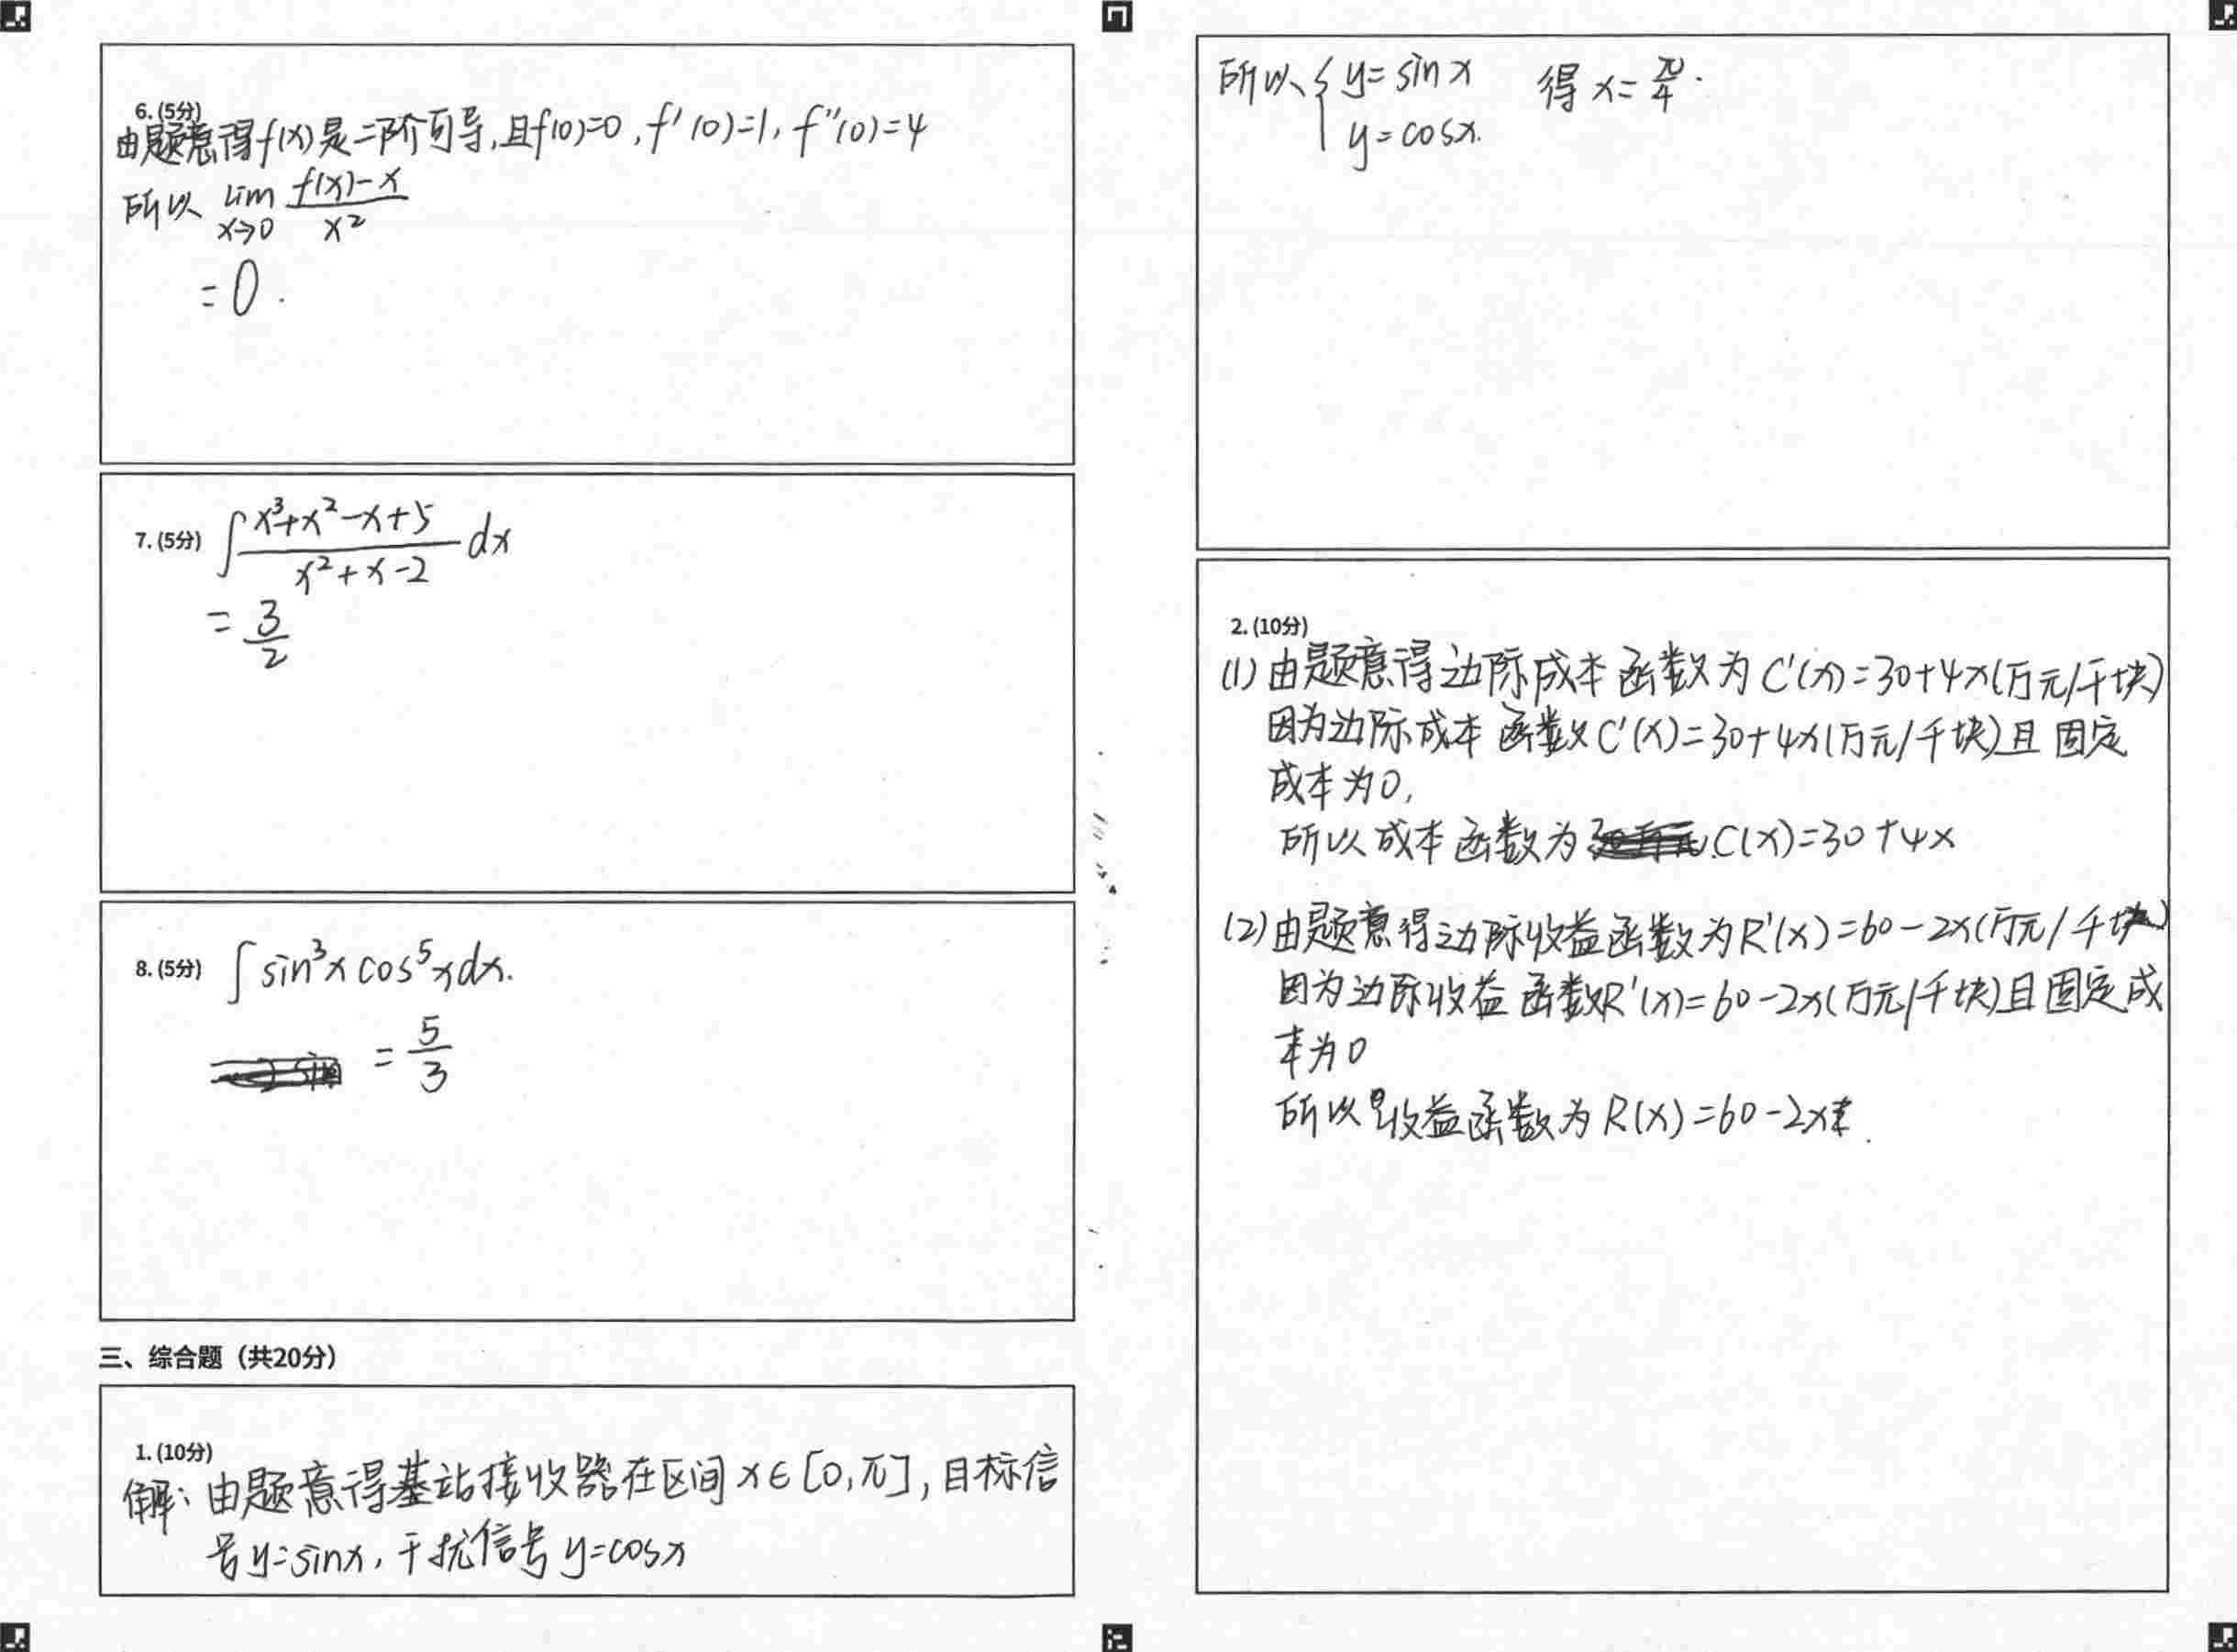 6. (5分)
由题意得f(x)是二阶可导,且f(0)=0, f'(0)=1, f''(0)=4
所以 lim x→0 (f(x)-x)/x²
= 0.
7. (5分) ∫ (x³+x²-x+5)/(x²+x-2) dx
= 3/2
8. (5分) ∫ sin³x cos⁵x dx.
= 5/3
三、综合题（共20分）
1. (10分)
解: 由题意得基站接收器在区间 x∈[0,π], 目标信
号y=sinx, 干扰信号 y=cosx
所以 { y=sinx 得 x=π/4.
y=cosx.
2. (10分)
(1) 由题意得边际成本函数为 C'(x)=30+4x(万元/千块)
因为边际成本函数C'(x)=30+4x(万元/千块)且固定
成本为0,
所以成本函数为 C(x)=30+4x
(2) 由题意得边际收益函数为R'(x)=60-2x(万元/千块)
因为边际收益函数R'(x)=60-2x(万元/千块)且固定成
本为0
所以收益函数为 R(x)=60-2x.